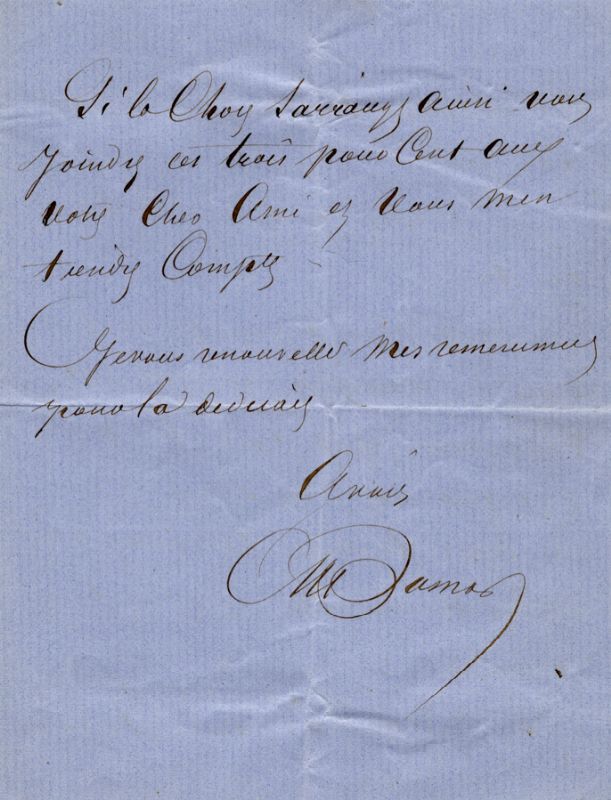 Si la Chose s'arrange ainsi vous
Joindrez ces trois pour Cent aux
votres Cher Ami et Vous m'en
tiendrez Compte
Je vous renouvelle mes remerciemens
pour la
Amitiés
Dumas